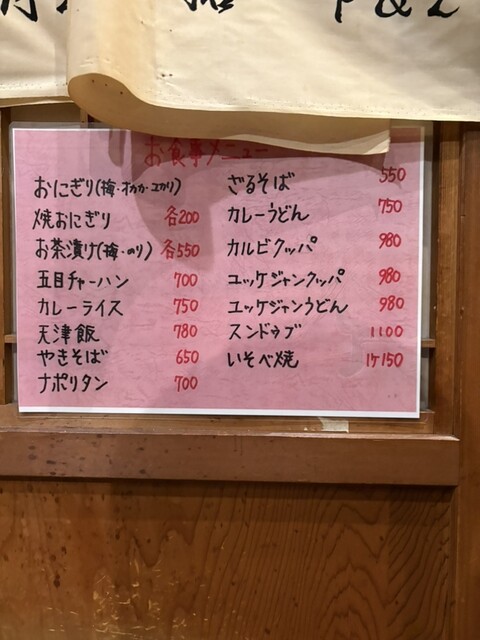 お食事メニュー
おにぎり(梅・オカカ・ユカリ)
焼おにぎり 各200
お茶漬け(梅・のり) 各550
五目チャーハン 700
カレーライス 750
天津飯 780
やきそば 650
ナポリタン 700
ざるそば 550
カレーうどん 750
カルビクッパ 980
ユッケジャンクッパ 980
ユッケジャンうどん 980
スンドゥブ 1100
いそべ焼 1ケ150